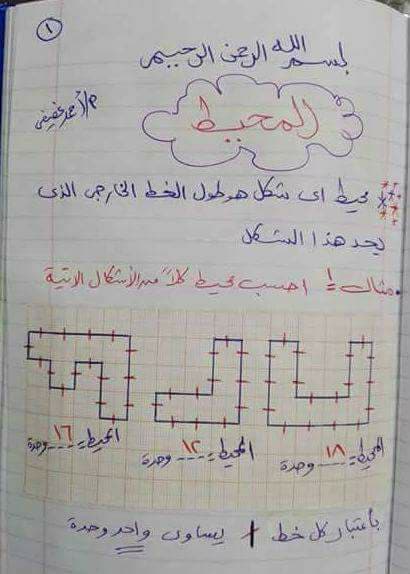 ١
بسم الله الرحمن الرحيم
المحيط
م/أحمد عفيفى
محيط اى شكل هو طول الخط الخارجى الذى
يحد هذا الشكل
مثال ١ احسب محيط كلاً من الأشكال الاتية
المحيط = ١٨ وحدة
المحيط = ١٢ وحدة
المحيط = ١٦ وحدة
بأعتبار كل خط يساوى واحد وحدة